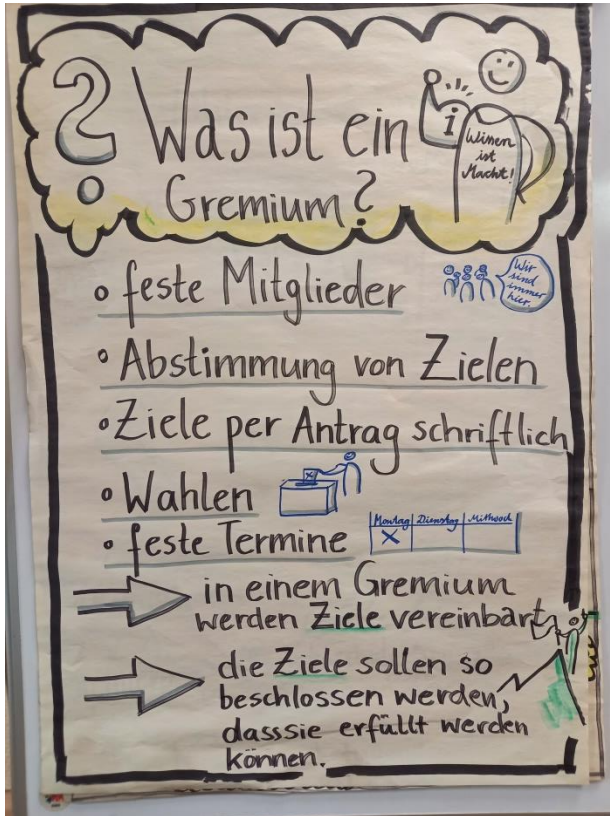 ? Was ist ein
Gremium?
i
Wissen
ist
Macht!
• feste Mitglieder
Wir
sind
immer
hier.
• Abstimmung von Zielen
• Ziele per Antrag schriftlich
• Wahlen
x
• feste Termine
Montag Dienstag Mittwoch
X
in einem Gremium
werden Ziele vereinbart,
die Ziele sollen so
beschlossen werden,
dasssie erfüllt werden
können.